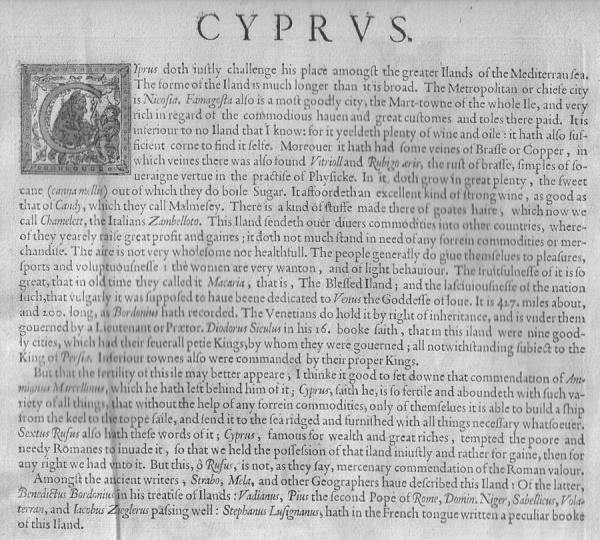 CYPRVS.
CYprus doth iustly challenge his place amongst the greater Ilands of the Mediterran sea.
The forme of the Iland is much longer than it is broad. The Metropolitan or chiefe city
is Nicosia. Famagosta also is a most goodly city, the Mart-towne of the whole Ile, and very
rich in regard of the commodious hauen and great customes and toles there paid. It is
inferiour to no Iland that I know: for it yeeldeth plenty of wine and oile: it hath also suf-
ficient corne to find it selfe. Moreouer it hath had some veines of Brasse or Copper, in
which veines there was also found Vitrioll and Rubigo æris, the rust of brasse, simples of so-
ueraigne vertue in the practise of Physicke. In it doth grow in great plenty, the sweet
cane (canna mellis) out of which they do boile Sugar. It affoordeth an excellent kind of strong wine, as good as
that of Candy, which they call Malmesey. There is a kind of stuffe made there of goates haire, which now we
call Chamelett, the Italians Zambelloto. This Iland sendeth ouer diuers commodities into other countries, where-
of they yearely raise great profit and gaines; it doth not much stand in need of any forrein commodities or mer-
chandise. The aire is not very wholesome nor healthfull. The people generally do giue themselues to pleasures,
sports and voluptuousnesse: the women are very wanton, and of light behauiour. The fruitfulnesse of it is so
great, that in old time they called it Macaria, that is, The Blessed Iland; and the lasciuiousnesse of the nation
such, that vulgarly it was supposed to haue beene dedicated to Venus the Goddesse of loue. It is 427. miles about,
and 200. long, as Bordonius hath recorded. The Venetians do hold it by right of inheritance, and is vnder them
gouerned by a Lieutenant or Prætor. Diodorus Siculus in his 16. booke saith, that in this iland were nine good-
ly cities, which had their seuerall petie Kings, by whom they were gouerned; all notwithstanding subiect to the
King of Persia. Inferiour townes also were commanded by their proper Kings.
But that the fertility of this ile may better appeare, I thinke it good to set downe that commendation of Am-
mianus Marcellinus, which he hath left behind him of it; Cyprus, saith he, is so fertile and aboundeth with such va-
riety of all things, that without the help of any forrein commodities, only of themselues it is able to build a ship
from the keel to the toppe saile, and send it to the sea ridged and furnished with all things necessary whatsoeuer.
Sextus Rufus also hath these words of it; Cyprus, famous for wealth and great riches, tempted the poore and
needy Romanes to inuade it, so that we held the possession of that iland iniustly and rather for gaine, then for
any right we had vnto it. But this, ô Rufus, is not, as they say, mercenary commendation of the Roman valour.
Amongst the ancient writers, Strabo, Mela, and other Geographers haue described this Iland: Of the latter,
Benedictus Bordonius in his treatise of Ilands: Vadianus, Pius the second Pope of Rome, Domin. Niger, Sabellicus, Vola-
terran, and Iacobus Zieglerus passing well: Stephanus Lusignanus, hath in the French tongue written a peculiar booke
of this Iland.